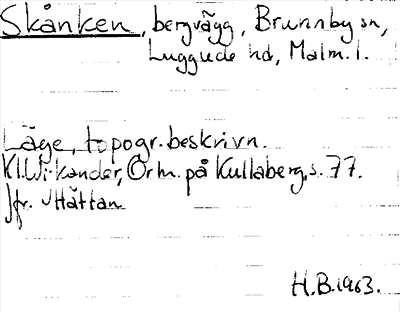 Skånken, bergvägg, Brunnby sn,
Luggude hd, Malm. l.
Läge, topogr. beskrivn.
Kl. Wikander, Orm. på Kullaberg, s. 77.
Jfr. Hättan
H.B. 1963.